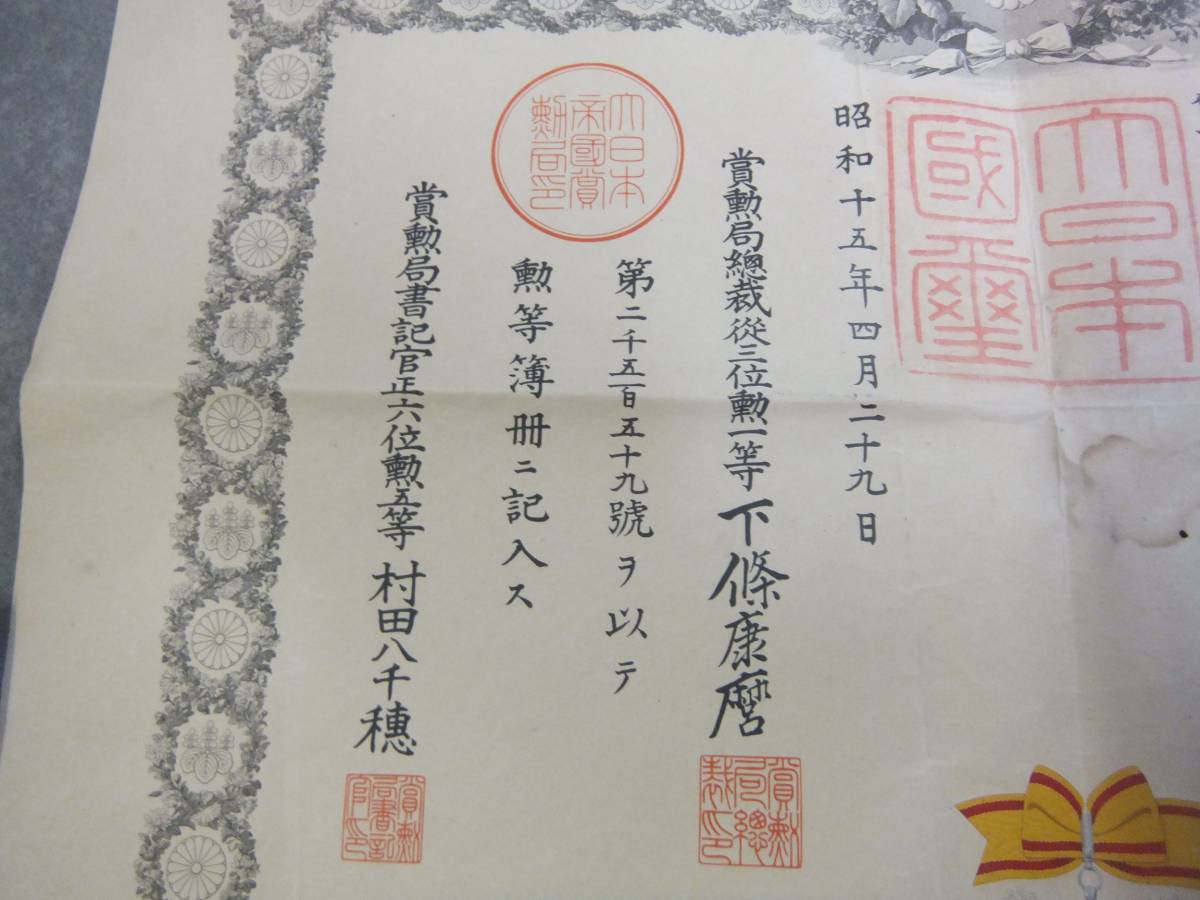 大日本國璽
昭和十五年四月二十九日
賞勲局總裁從三位勲一等下條康麿
賞勲局總裁印
第二千五百五十九號ヲ以テ
勲等簿册ニ記入ス
大日本帝國賞勲局印
賞勲局書記官正六位勲五等村田八千穗
賞勲局書記官印